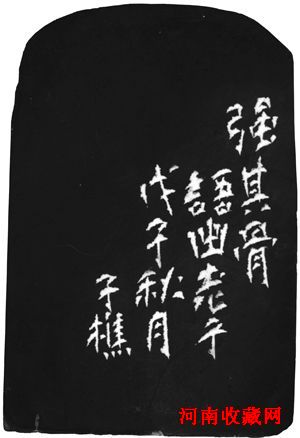 强其骨
語出老子
戊子秋月
子樵
河南收藏网